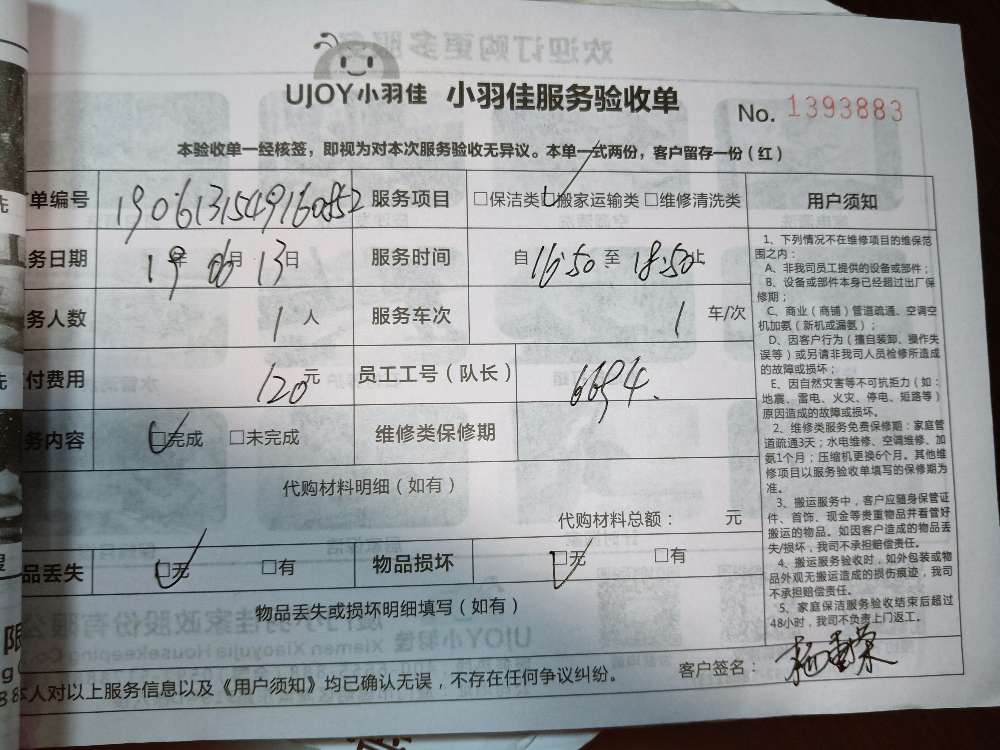 UJOY小羽佳 小羽佳服务验收单 No. 1393883
本验收单一经核签，即视为对本次服务验收无异议。本单一式两份，客户留存一份（红）
单编号 190613154916052 服务项目 □保洁类 □搬家运输类 □维修清洗类 用户须知
务日期 19年06月13日 服务时间 自16:50至18:50止
务人数 1人 服务车次 1车/次
付费用 120元 员工工号（队长） 6694.
务内容 □完成 □未完成 维修类保修期
代购材料明细（如有）
代购材料总额： 元
品丢失 □无 □有 物品损坏 □无 □有
物品丢失或损坏明细填写（如有）
本人对以上服务信息以及《用户须知》均已确认无误，不存在任何争议纠纷。 客户签名：
1、下列情况不在维修项目的维保范
围之内：
A、非我司员工提供的设备或部件；
B、设备或部件本身已经超过出厂保
修期；
C、商业（商铺）管道疏通、空调空
机加氨（新机或漏氨）；
D、因客户行为（擅自装卸、操作失
误等）或另请非我司人员检修所造成
的故障或损坏；
E、因自然灾害等不可抗拒力（如：
地震、雷电、火灾、停电、短路等）
原因造成的故障或损坏。
2、维修类服务免费保修期：家庭管
道疏通3天；水电维修、空调维修、加
氨1个月；压缩机更换6个月。其他维
修项目以服务验收单填写的保修期为
准。
3、搬运服务中，客户应随身保管证
件、首饰、现金等贵重物品并看管好
搬运的物品。如因客户造成的物品丢
失/损坏，我司不承担赔偿责任。
4、搬运服务验收时，如外包装或物
品外观无搬运造成的损伤痕迹，我司
不承担赔偿责任。
5、家庭保洁服务验收结束后超过
48小时，我司不负责上门返工。